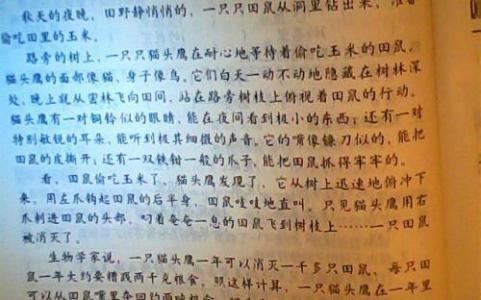 秋天的夜晚，田野静悄悄的，一只只田鼠从洞里钻出来，准备
偷吃田里的玉米。
路旁的树上，一只只猫头鹰在耐心地等待着偷吃玉米的田鼠。
猫头鹰的面部像猫，身子像鸟，它们白天一动不动地隐藏在树林深
处，晚上就从密林飞向田间，站在路旁树枝上俯视着田鼠的行动。
猫头鹰有一对铜铃似的眼睛，能在夜间看到极小的东西；还有一对
特别敏锐的耳朵，能听到极其细微的声音。它的嘴像镰刀似的，能把
田鼠的皮撕开；还有一双铁钳一般的爪子，能把田鼠抓得牢牢的。
看，田鼠偷吃玉米了。猫头鹰发现了，它从树上迅速地俯冲下
来，用左爪钩起田鼠的后半身，田鼠哇哇地直叫。只见猫头鹰用右
爪刺进田鼠的头部，叼着奄奄一息的田鼠飞到树枝上……一只田鼠
被消灭了。
生物学家说，一只猫头鹰一年可以消灭一千多只田鼠，每只田
鼠一年大约要糟践两千克粮食，照这样计算，一只猫头鹰在一年里
可以从田鼠嘴里夺回约两吨粮食